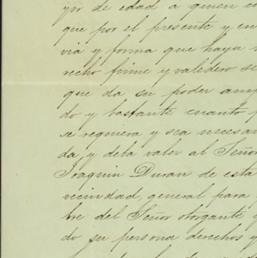 yor de edad a quien co
que por el presente y en
via y forma que haya
recho firme y valedero se
que da su poder amp
do y bastante cuanto
se requiera y sea necesar
da y deba valer al Señor
Joaquin Duran de esta
vecindad, general para
bre del Señor otorgante y
do su persona derechos y